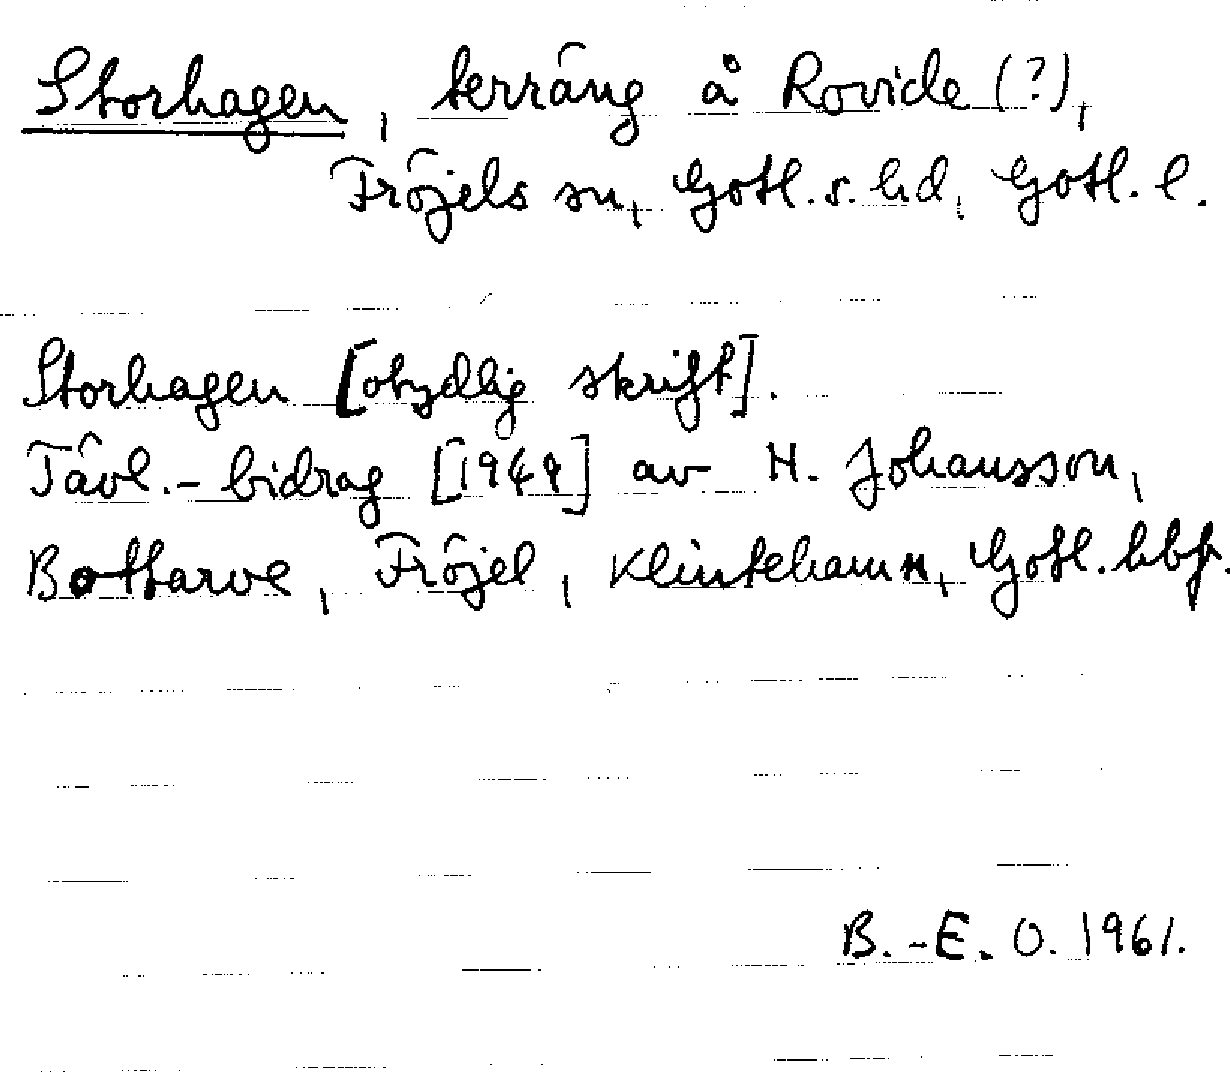 Storhagen, terräng å Rovide (?),
Fröjels sn, Gotl. s. hd, Gotl. l.
Storhagen [otydlig skrift].
Tävl.-bidrag [1949] av H. Johansson,
Bottarve, Fröjel, Klintehamn, Gotl. hbf.
B.-E. O. 1961.